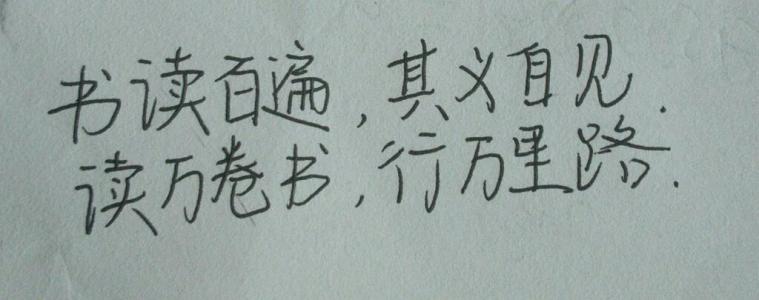 书读百遍,其义自见.
读万卷书,行万里路.